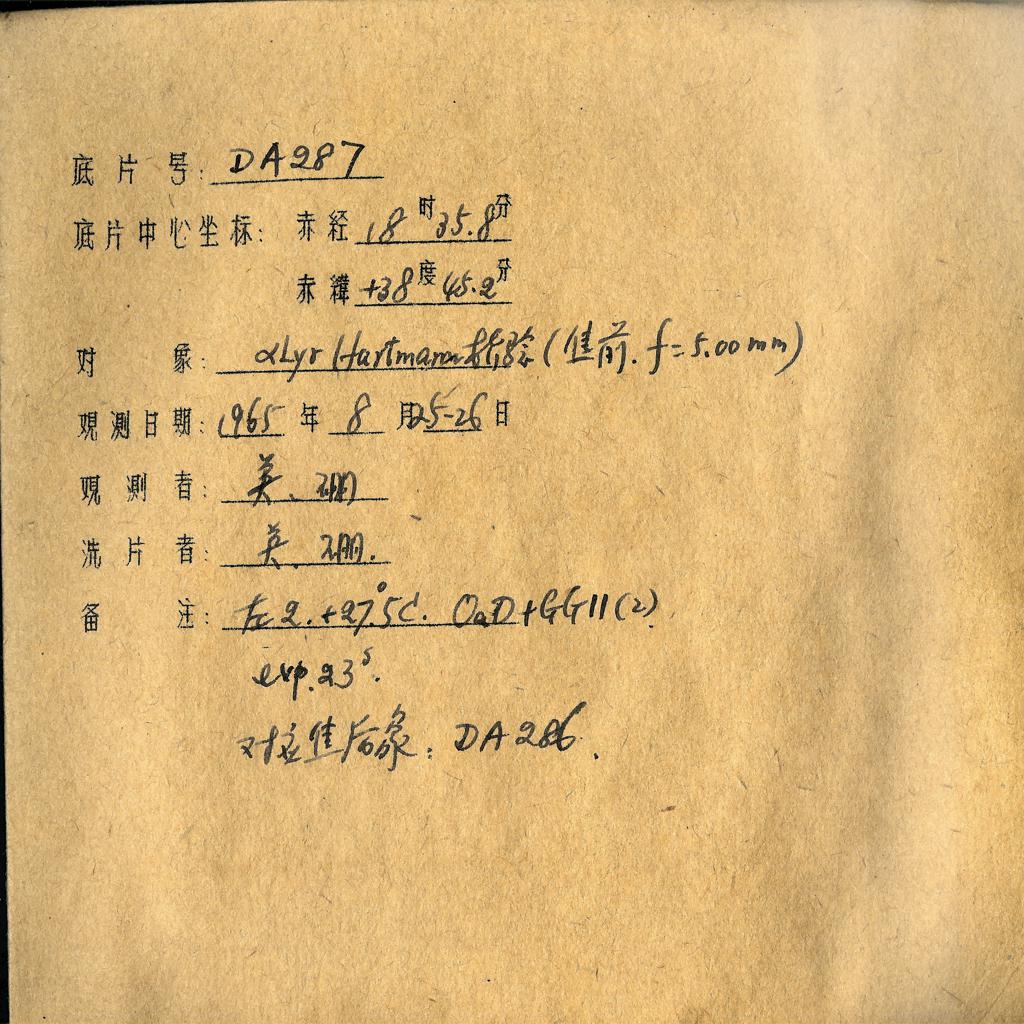 底片号: DA287
底片中心坐标: 赤经 18时35.8分
赤纬 +38度45.2分
对象: αLyr Hartmann 检验(焦前. f=5.00mm)
观测日期: 1965年8月25-26日
观测者: 英、珊
洗片者: 英、珊.
备注: 左2. +27.°5C. OaD+GG11(2)
exp. 23ˢ.
对应焦后象: DA286.